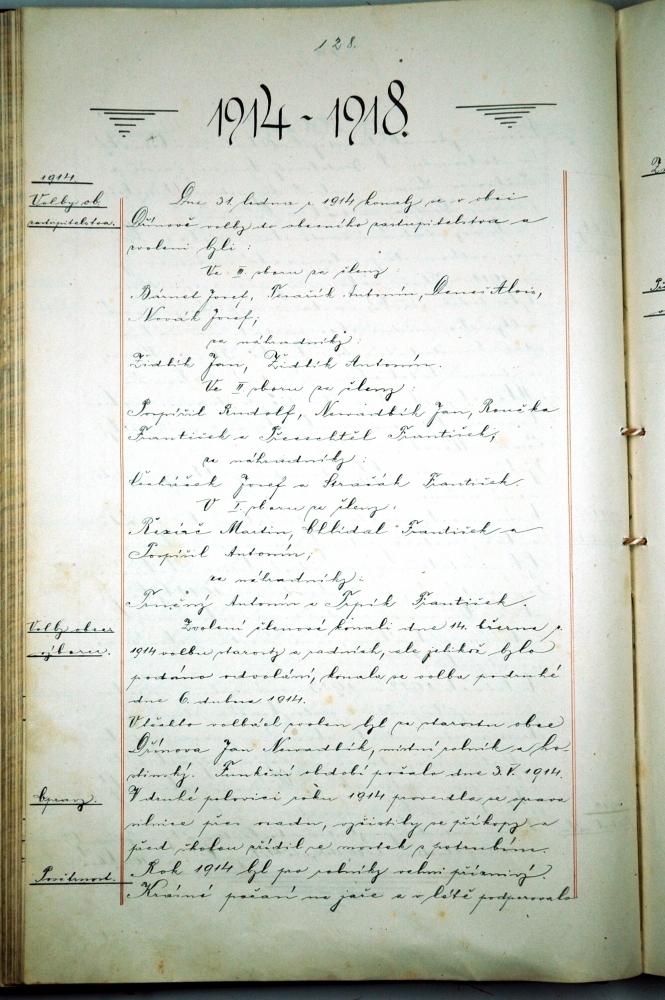 128.
1914 - 1918.
1914
Volby ob.
zastupitelstva.
Dne 31. ledna r. 1914 konaly se v obci
Dřínově volby do obecního zastupitelstva a
zvoleni byli:
Ve III. sboru za členy:
Bárnet Josef, Antonín, Alois,
Novák Josef;
za náhradníky:
Židlík Jan, Židlík Antonín.
Ve II. sboru za členy:
Pospíšil Rudolf, Jan, Konečka
František a František,
za náhradníky:
Josef a František.
V I. sboru za členy:
Řezáč Martin, Chlídal František a
Pospíšil Antonín;
za náhradníky:
Antonín a Trpík František.
Volby obec.
výboru.
Zvolení členové konali dne 14. března r.
1914 volbu starosty a radních, ale jelikož bylo
podáno odvolání, konala se volba podruhé
dne 6. dubna 1914.
V těchto volbách zvolen byl za starostu obce
Dřínova Jan, místní rolník a ho-
stinský. Funkční období počalo dne 3. V. 1914.
Opravy.
V druhé polovici roku 1914 provedla se oprava
silnice přes osadu, vyčistily se příkopy a
před školou zřídil se mostek z potrubím.
Povětrnost.
Rok 1914 byl pro rolníky velmi příznivý.
Krásné počasí na jaře a v létě podporovalo